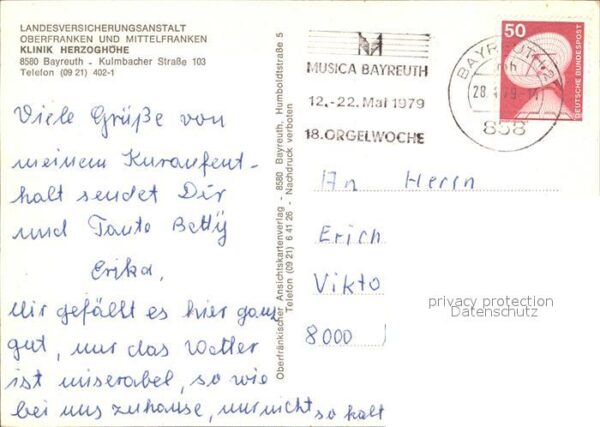 LANDESVERSICHERUNGSANSTALT
OBERFRANKEN UND MITTELFRANKEN
KLINIK HERZOGHÖHE
8580 Bayreuth - Kulmbacher Straße 103
Telefon (09 21) 402-1
Viele Grüße von
meinem Kuraufent-
halt sendet Dir
und Tante Betty
Erika.
Mir gefällt es hier ganz
gut, nur das Wetter
ist miserabel, so wie
bei uns zuhause, nur nicht so kalt
Oberfränkischer Ansichtskartenverlag - 8580 Bayreuth, Humboldtstraße 5
Telefon (09 21) 6 41 26 - Nachdruck verboten
MUSICA BAYREUTH
12.-22. Mai 1979
18. ORGELWOCHE
BAYREUTH 2
28. 79-
858
50
DEUTSCHE BUNDESPOST
An Herrn
Erich
Vikto
8000
privacy protection
Datenschutz